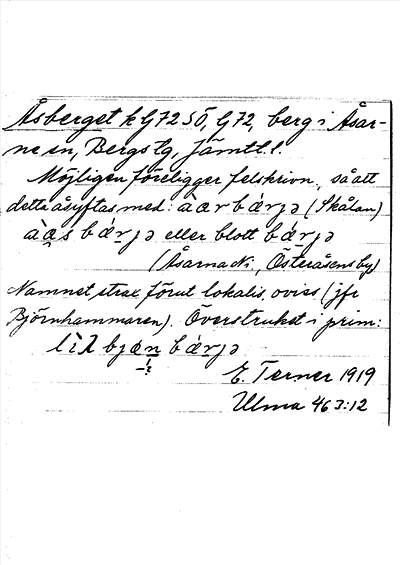 Åsberget k G72SÖ, G72, berg i Åsar-
ne sn, Bergs tg, Jämtl. l.
Möjligen föreligger felskrivn., så att
detta åsyftas med: (Skålan)
eller blott
(Åsarna Ni., Österåsens by)
Namnet strax förut lokalis. ovies (jfr
Björnhammaren). Överstruket i prim:
E. Terner 1919
Ulma 463:12